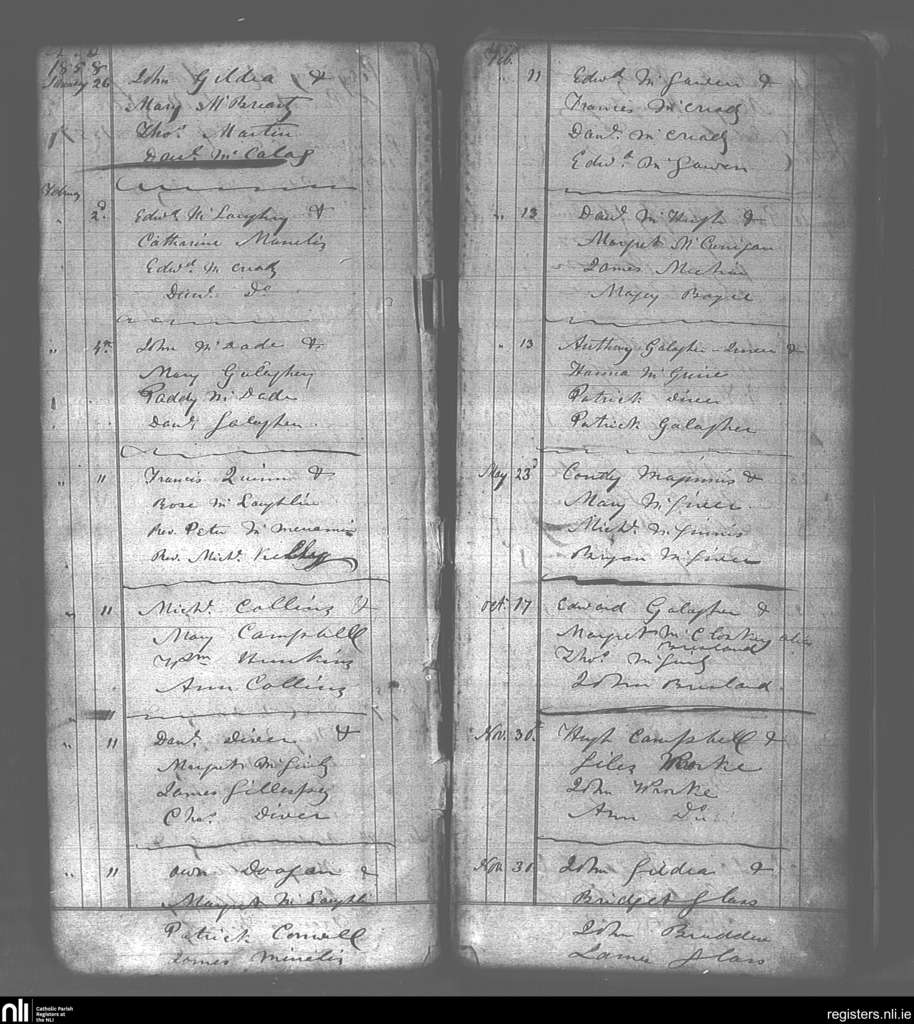 1858
January 26 John Gildea &
Mary McPercart
Thos. Martin
Danl. McCalag
Febuy
" 2d. Edwd. McLaughey &
Catharine Menelis
Edwd. McCrudy
Danl. Do
" 4th. John McDade &
Mary Galagher
Paddy McDade
Danl. Galagher
" 11 Francis Quinn &
Rose McLaughlin
Rev. Peter McMenamin
Rev. Michl.
" 11 Michl. Collins &
Mary Campbell
Wm Hunkins
Ann Collins
" 11 Danl. Diver &
Margret McGinly
James Gillespey
Chas. Diver
" 11 Own Doogan &
Margret McLaughli
Patrick Conwell
James Menelis
Feb.
" 11 Edwd. McGowen &
Frances McCrudy
Danl. McCrudy
Edwd. McGowen
" 12 Danl. McHugh &
Margret McCunigan
James Meehan
Magey Bogle
" 13 Anthony Galagher Diver &
Hanna McGuire
Patrick Diver
Patrick Galagher
May 23d Condy Maginnis &
Mary McGreer
Michl. McGinnis
Bryan McGreer
Oct. 17 Edward Galagher &
Margret McCloskey alias
Bresland
Thos. McGinly
John Bresland
Nov. 30th. Hugh Campbell &
Giles Rorke
John Rhorke
Ann Do.
Nov. 30 John Gildea &
Bridget Glass
John Brudden
James Glass
nli Catholic Parish
Registers at
the NLI
registers.nli.ie